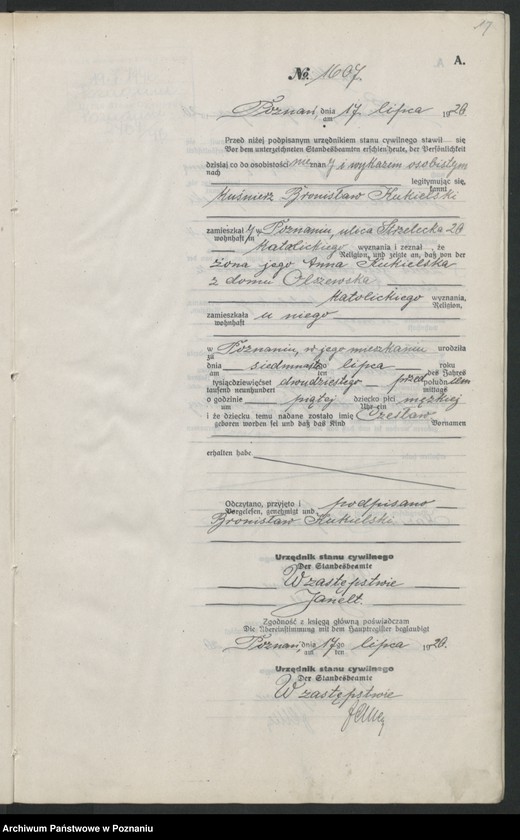 17
A.
№ 1607
Poznań, dnia 17 lipca 1920
am
Przed niżej podpisanym urzędnikiem stanu cywilnego stawił się
Vor dem unterzeichneten Standesbeamten erschien heute, der Persönlichkeit
dzisiaj co do osobistości nieznany i wykazem osobistym
nach
legitymując się,
kannt
kuśnierz Bronisław Kukielski
zamieszkały w Poznaniu, ulica Strzelecka 20
wohnhaft in
katolickiego wyznania i zeznał, że
Religion, und zeigte an, daß von der
żona jego Anna Kukielska
z domu Olszewska
katolickiego wyznania,
Religion,
zamieszkała u niego
wohnhaft
w Poznaniu, w jego mieszkaniu urodziła
zu
dnia siedmnastego lipca roku
am ten des Jahres
tysiącdziewięćset dwudziestego przed południem
tausend neunhundert mittags
o godzinie piątej dziecko płci męzkiej
um Uhr ein
i że dziecku temu nadane zostało imię Czesław
geboren worden sei und daß das Kind Vornamen
erhalten habe
Odczytano, przyjęto i podpisano
Vorgelesen, genehmigt und
Bronisław Kukielski
Urzędnik stanu cywilnego
Der Standesbeamte
W zastępstwie
Janelt.
Zgodność z księgą główną poświadczam
Die Übereinstimmung mit dem Hauptregister beglaubigt
Poznań, dnia 17go lipca 1920.
am ten
Urzędnik stanu cywilnego
Der Standesbeamte
W zastępstwie
Archiwum Państwowe w Poznaniu
szukajwarchiwach.pl